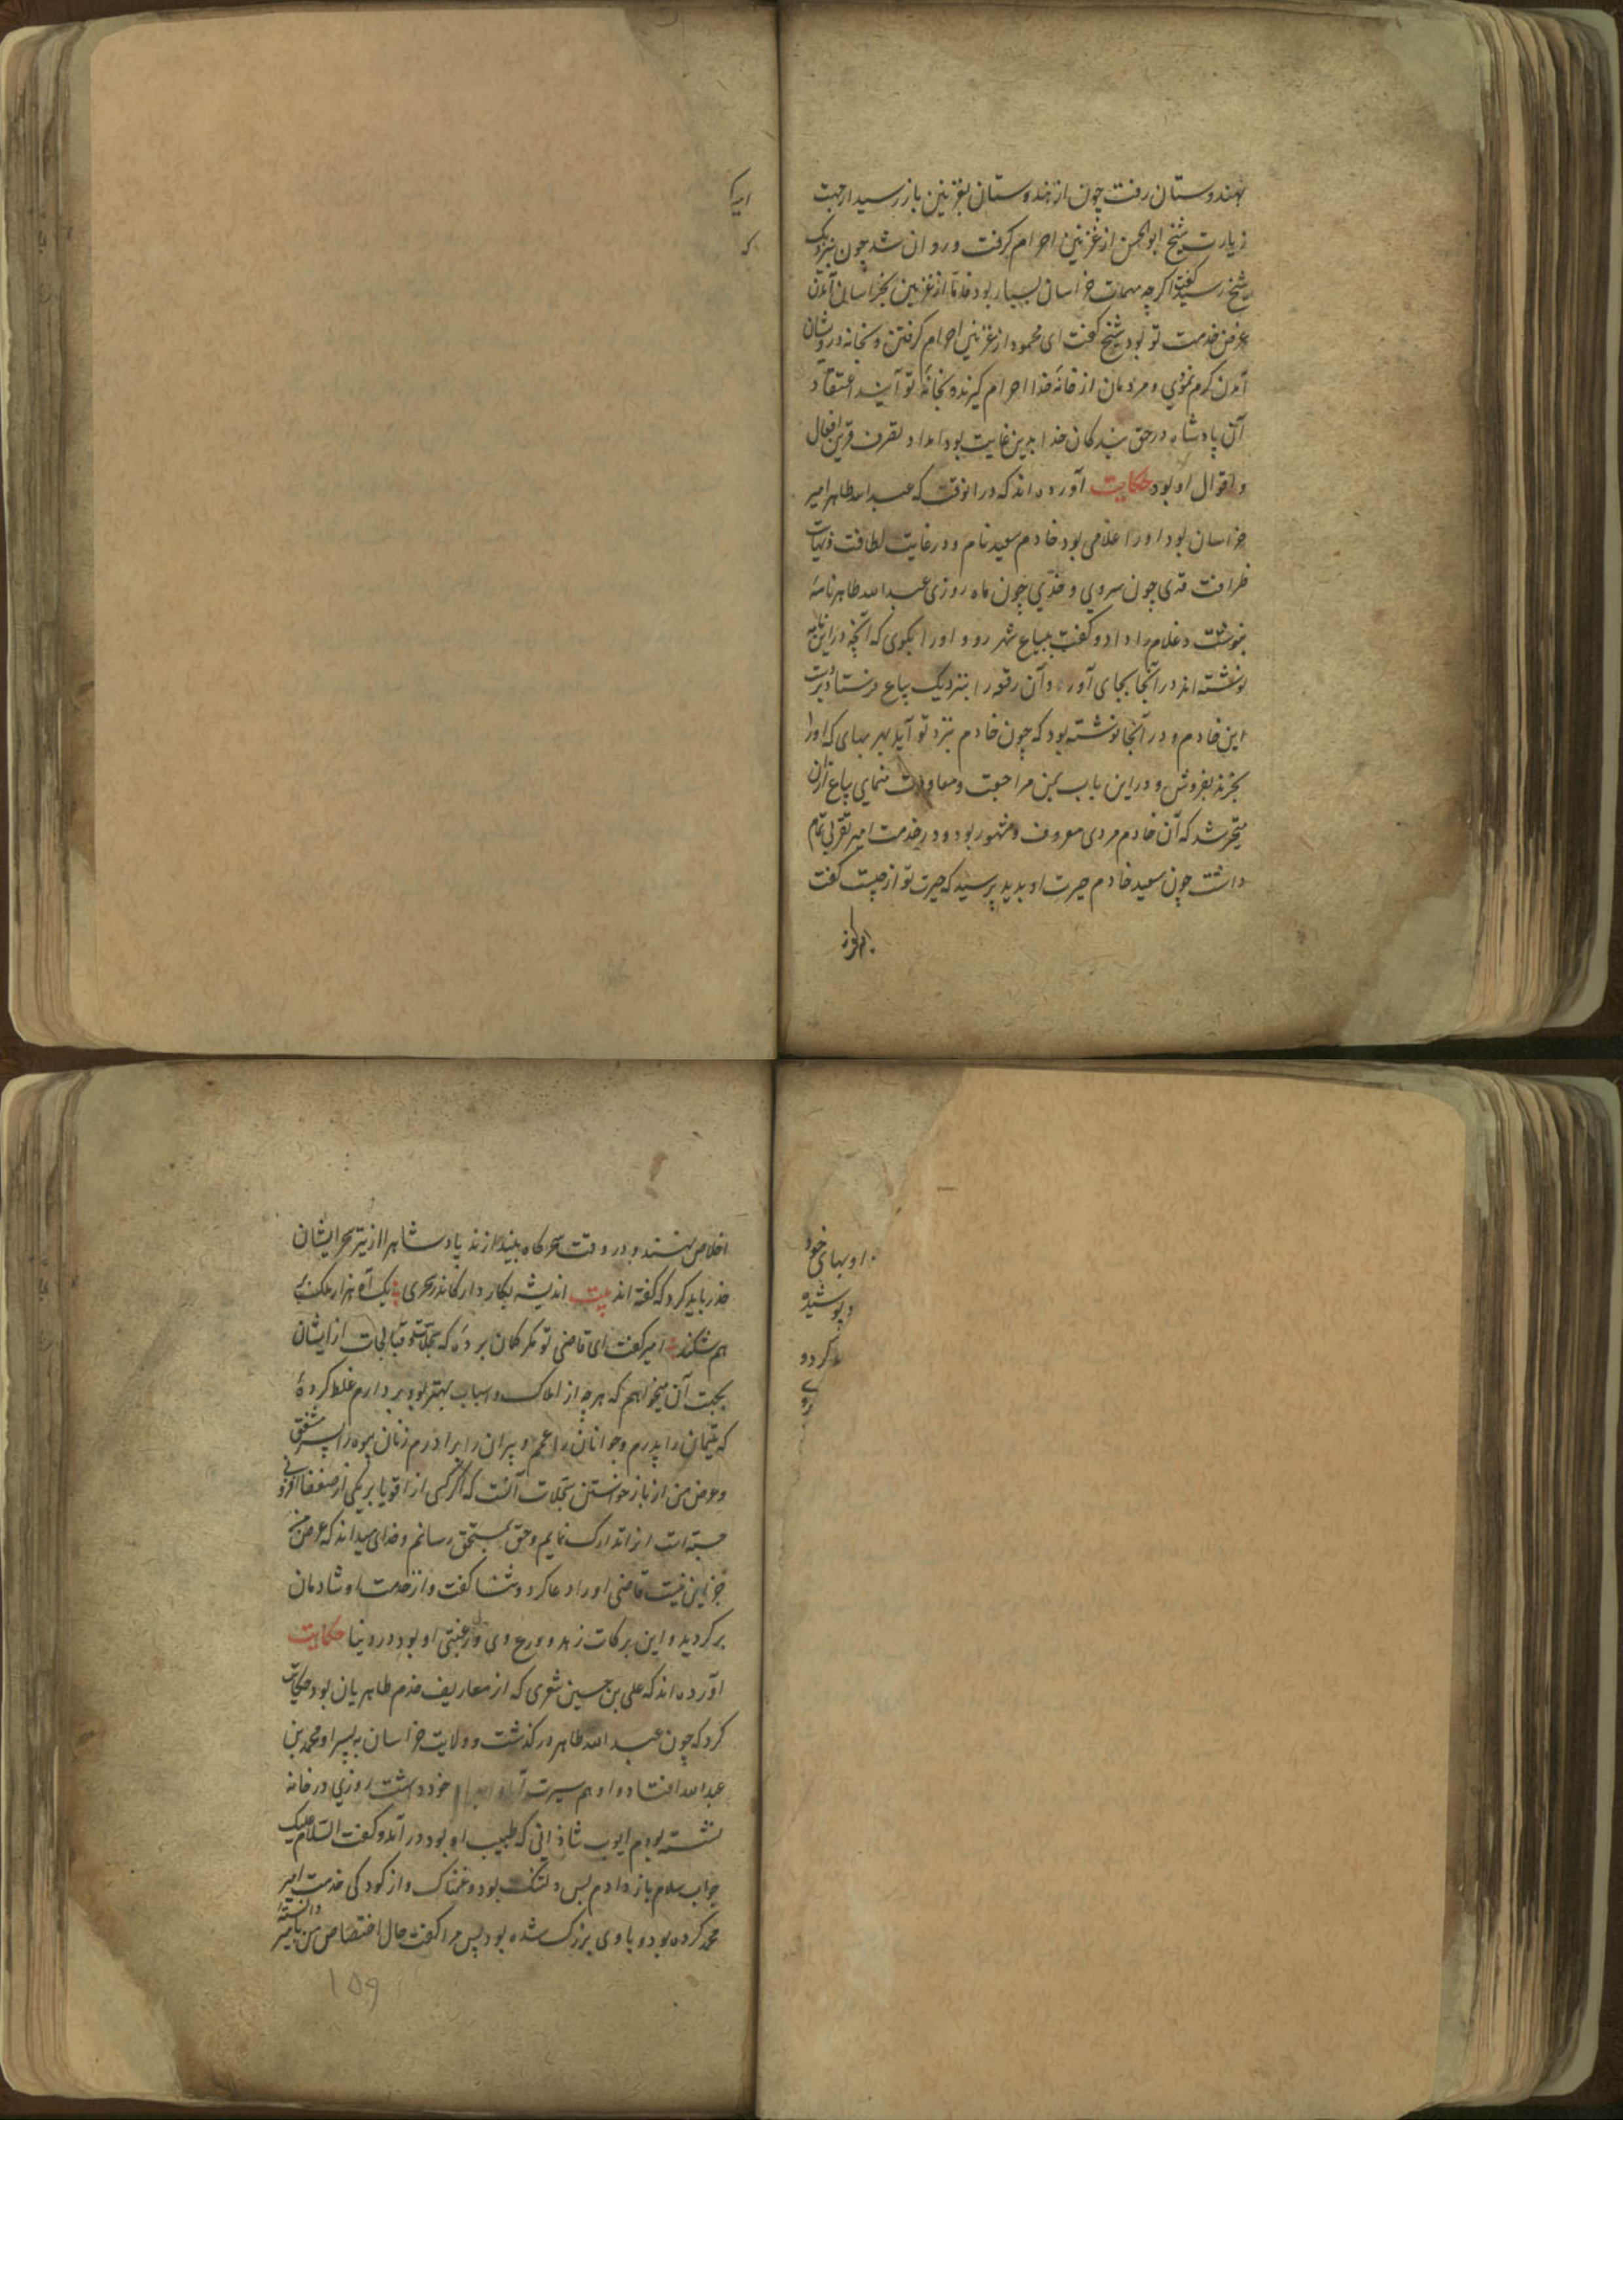 بهندوستان رفت چون از هندوستان بغزنین باز رسید از جهت
زیارت شیخ ابوالحسن از غزنین احرام گرفت و روان شد چون بنزدیک
شیخ رسید گفت اگرچه مهمات خراسان بسیار بود فاما از غزنین بخراسان آمدن
غرض خدمت تو بود شیخ گفت ای محمود از غزنین احرام گرفتن و بخانه درویشان
آمدن کرم نمودی و مردمان از خانهٔ خدا احرام گیرند و بخانهٔ تو آیند اعتقاد
آن پادشاه در حق بندگان خدا بدین غایت بود امداد تصرف قرین افعال
و اقوال او بود حکایت آورده اند که در انوقت که عبدالله طاهر امیر
خراسان بود او را غلامی بود خادم سعید نام و در غایت لطافت و نهایت
ظرافت قدی چون سروی و خدی چون ماه روزی عبدالله طاهر نامهٔ
بنوشت و غلام را داد و گفت ببیاع شهر رو و او را بگوی که آنچه در این نامه
نوشته اند در آنجا بجای آور و آن رقعه را بنزدیک بیاع فرستاد بدست
این خادم و در آنجا نوشته بود که چون خادم نزد تو آید بهر بهای که او را
بخرند بفروش و در این باب بمن مراجعت و معاودت منمای بیاع از آن
متحیر شد که آن خادم مردی معروف و مشهور بود و در خدمت امیر تقربی تمام
داشت چون سعید خادم حیرت او بدید پرسید که حیرت تو از چیست گفت
امیر
که
اخلاص بنهند و در وقت سحرگاه بیندازند پادشاه را از تیر سحر ایشان
حذر باید کرد که گفته اند بیت اندیشه بکار دار کاندر سحری بیک آه هزار ملک
هم شکند امیر گفت ای قاضی تو مگر گمان برده که سجلات و قبالجات از ایشان
بجهت آن میخواهم که هرچه از املاک و اسباب بهتر بود بردارم غلط کردهٔ
که یتیمان را پدرم و جوانان را عمم و پیران را برادرم زنان بیوه را پسر مشفق
و غرض من از باز خواستن سجلات آنست که اگر کسی از اقویا بر یکی از ضعفا افزونی
جسته است انرا تدارک نمایم و حق بمستحق رسانم و خدای میداند که غرض من
جز این نیست قاضی او را دعا کرد و ثنا گفت و از خدمت او شادمان
برگردید و این برکات زهد و ورع وی و رغبتی او بود در دنیا حکایت
آورده اند که علی بن حسین شعری که از معاریف خدم طاهریان بود حکایت
کرد که چون عبدالله طاهر درگذشت و ولایت خراسان به پسر او محمد بن
عبدالله افتاد و او هم سیرت خود داشت روزی در خانه
نشسته بودم ایوب شاذانی که طبیب او بود در آمد و گفت السلام علیک
جواب سلام باز دادم بس دلتنگ بود و غمناک و از کودکی خدمت امیر
محمد کرده بود و با وی بزرگ شده بود پس مرا گفت حال اختصاص من با میر دانسته
۱۵۹
او بهای خود
و پوشیده
کرد و